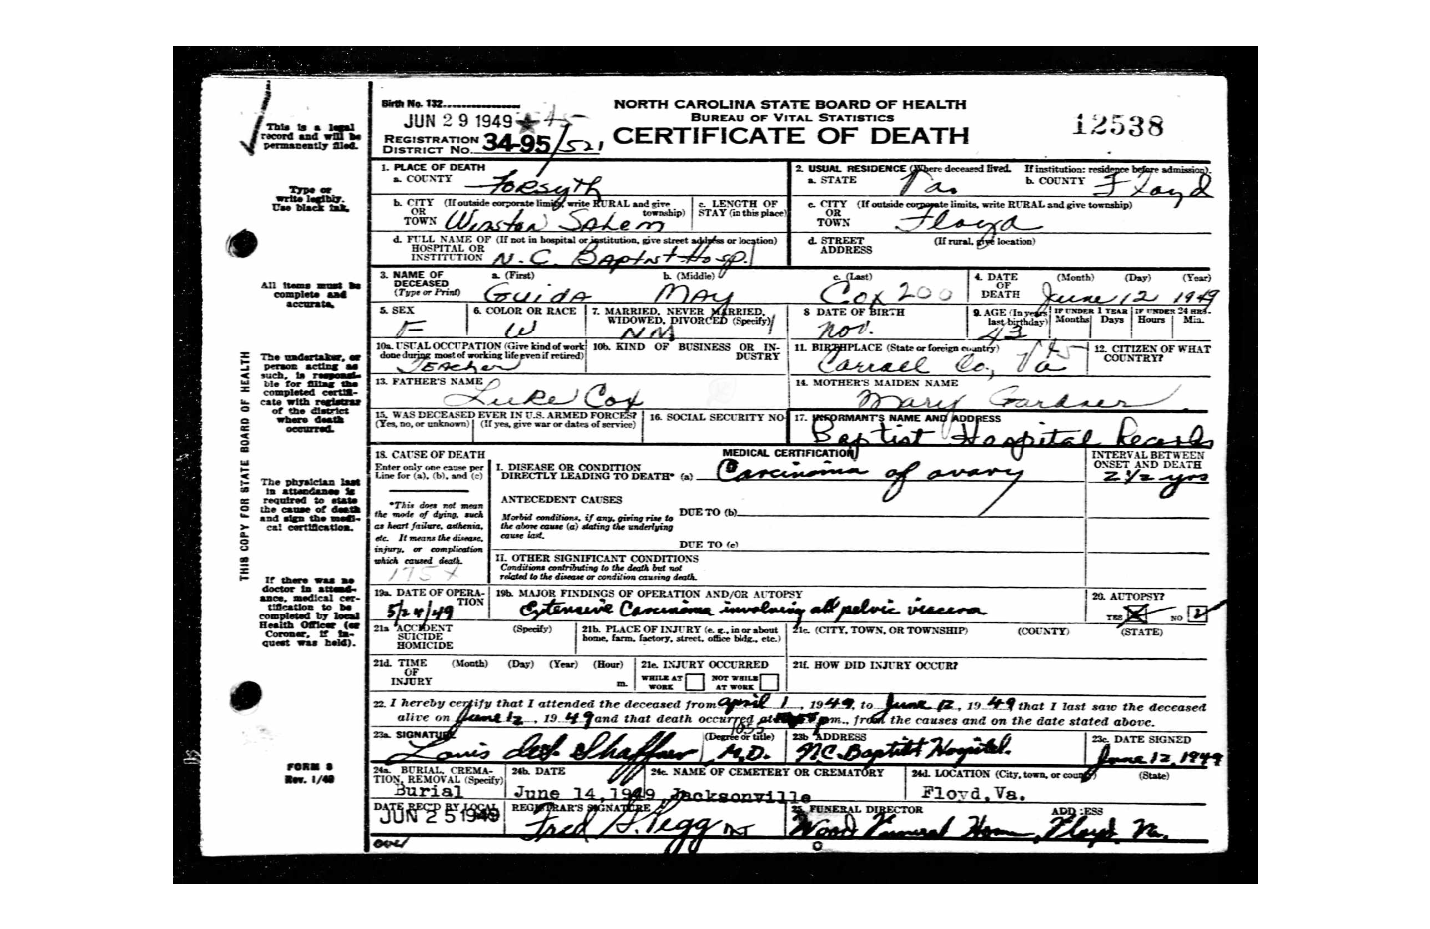 Birth No. 132
JUN 29 1949
NORTH CAROLINA STATE BOARD OF HEALTH
BUREAU OF VITAL STATISTICS
REGISTRATION DISTRICT No. 34-95/521
CERTIFICATE OF DEATH
12538
This is a legal record and will be permanently filed.
Type or write legibly. Use black ink.
All items must be complete and accurate.
The undertaker, or person acting as such, is responsible for filing the completed certificate with registrar of the district where death occurred.
The physician last in attendance is required to state the cause of death and sign the medical certification.
If there was no doctor in attendance, medical certification to be completed by local Health Officer (or Coroner, if inquest was held).
FORM 8
Rev. 1/49
THIS COPY FOR STATE BOARD OF HEALTH
1. PLACE OF DEATH
a. COUNTY Forsyth
2. USUAL RESIDENCE (Where deceased lived. If institution: residence before admission).
a. STATE Va. b. COUNTY Floyd
b. CITY (If outside corporate limits, write RURAL and give township) OR TOWN Winston Salem
c. LENGTH OF STAY (in this place)
c. CITY (If outside corporate limits, write RURAL and give township) OR TOWN Floyd
d. FULL NAME OF (If not in hospital or institution, give street address or location) HOSPITAL OR INSTITUTION N.C. Baptist Hosp.
d. STREET ADDRESS (If rural, give location)
3. NAME OF DECEASED (Type or Print) a. (First) b. (Middle) c. (Last)
Guida May Cox 200
4. DATE OF DEATH (Month) (Day) (Year) June 12 1949
5. SEX F
6. COLOR OR RACE W
7. MARRIED, NEVER MARRIED, WIDOWED, DIVORCED (Specify) NM
8 DATE OF BIRTH Nov.
9. AGE (In years last birthday) 43 IF UNDER 1 YEAR Months Days IF UNDER 24 HRS. Hours Min.
10a. USUAL OCCUPATION (Give kind of work done during most of working life even if retired) Teacher
10b. KIND OF BUSINESS OR INDUSTRY
11. BIRTHPLACE (State or foreign country) Carroll Co., Va
12. CITIZEN OF WHAT COUNTRY?
13. FATHER'S NAME Luke Cox
14. MOTHER'S MAIDEN NAME Mary Gardner
15. WAS DECEASED EVER IN U.S. ARMED FORCES? (Yes, no, or unknown) (If yes, give war or dates of service)
16. SOCIAL SECURITY NO.
17. INFORMANT'S NAME AND ADDRESS
Baptist Hospital Records
18. CAUSE OF DEATH
Enter only one cause per Line for (a), (b), and (c)
*This does not mean the mode of dying, such as heart failure, asthenia, etc. It means the disease, injury, or complication which caused death.
MEDICAL CERTIFICATION
INTERVAL BETWEEN ONSET AND DEATH
I. DISEASE OR CONDITION DIRECTLY LEADING TO DEATH* (a) Carcinoma of ovary 2 1/2 yrs
ANTECEDENT CAUSES
Morbid conditions, if any, giving rise to the above cause (a) stating the underlying cause last.
DUE TO (b)
DUE TO (c)
II. OTHER SIGNIFICANT CONDITIONS
Conditions contributing to the death but not related to the disease or condition causing death.
19a. DATE OF OPERATION 5/24/49
19b. MAJOR FINDINGS OF OPERATION AND/OR AUTOPSY
Extensive Carcinoma involving all pelvic viscera
20. AUTOPSY? YES NO
21a ACCIDENT SUICIDE HOMICIDE (Specify)
21b. PLACE OF INJURY (e. g., in or about home, farm, factory, street, office bldg., etc.)
21c. (CITY, TOWN, OR TOWNSHIP) (COUNTY) (STATE)
21d. TIME OF INJURY (Month) (Day) (Year) (Hour) m.
21e. INJURY OCCURRED WHILE AT WORK NOT WHILE AT WORK
21f. HOW DID INJURY OCCUR?
22. I hereby certify that I attended the deceased from April 1, 1949, to June 12, 1949 that I last saw the deceased
alive on June 12, 1949 and that death occurred at 1055 pm., from the causes and on the date stated above.
23a. SIGNATURE (Degree or title) Louis Shaffner M.D.
23b ADDRESS N.C. Baptist Hospital.
23c. DATE SIGNED June 12, 1949
24a. BURIAL, CREMATION, REMOVAL (Specify) Burial
24b. DATE June 14, 1949
24c. NAME OF CEMETERY OR CREMATORY Jacksonville
24d. LOCATION (City, town, or county) (State) Floyd, Va.
DATE REC'D BY LOCAL JUN 25 1949
REGISTRAR'S SIGNATURE Fred G. Pegg
25. FUNERAL DIRECTOR ADDRESS
Wood Funeral Home, Floyd, Va.